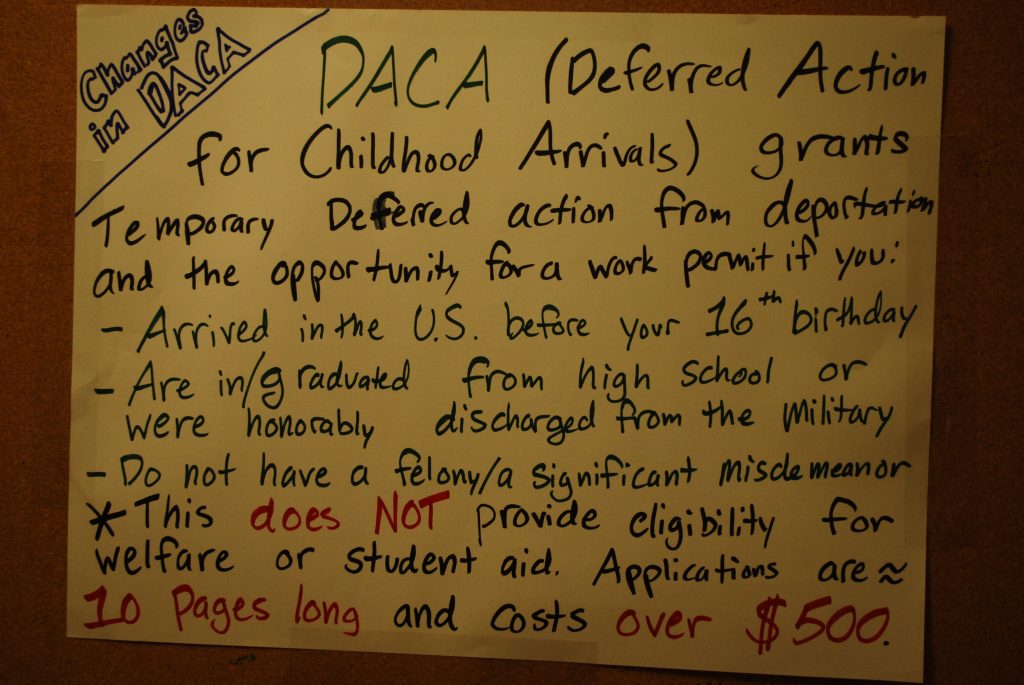 Changes
in DACA
DACA (Deferred Action
for Childhood Arrivals) grants
Temporary Deferred action from deportation
and the opportunity for a work permit if you:
- Arrived in the U.S. before your 16th birthday
- Are in/graduated from high school or
were honorably discharged from the military
- Do not have a felony/a significant misdemeanor
* This does NOT provide eligibility for
welfare or student aid. Applications are ≈
10 Pages long and costs over $500.